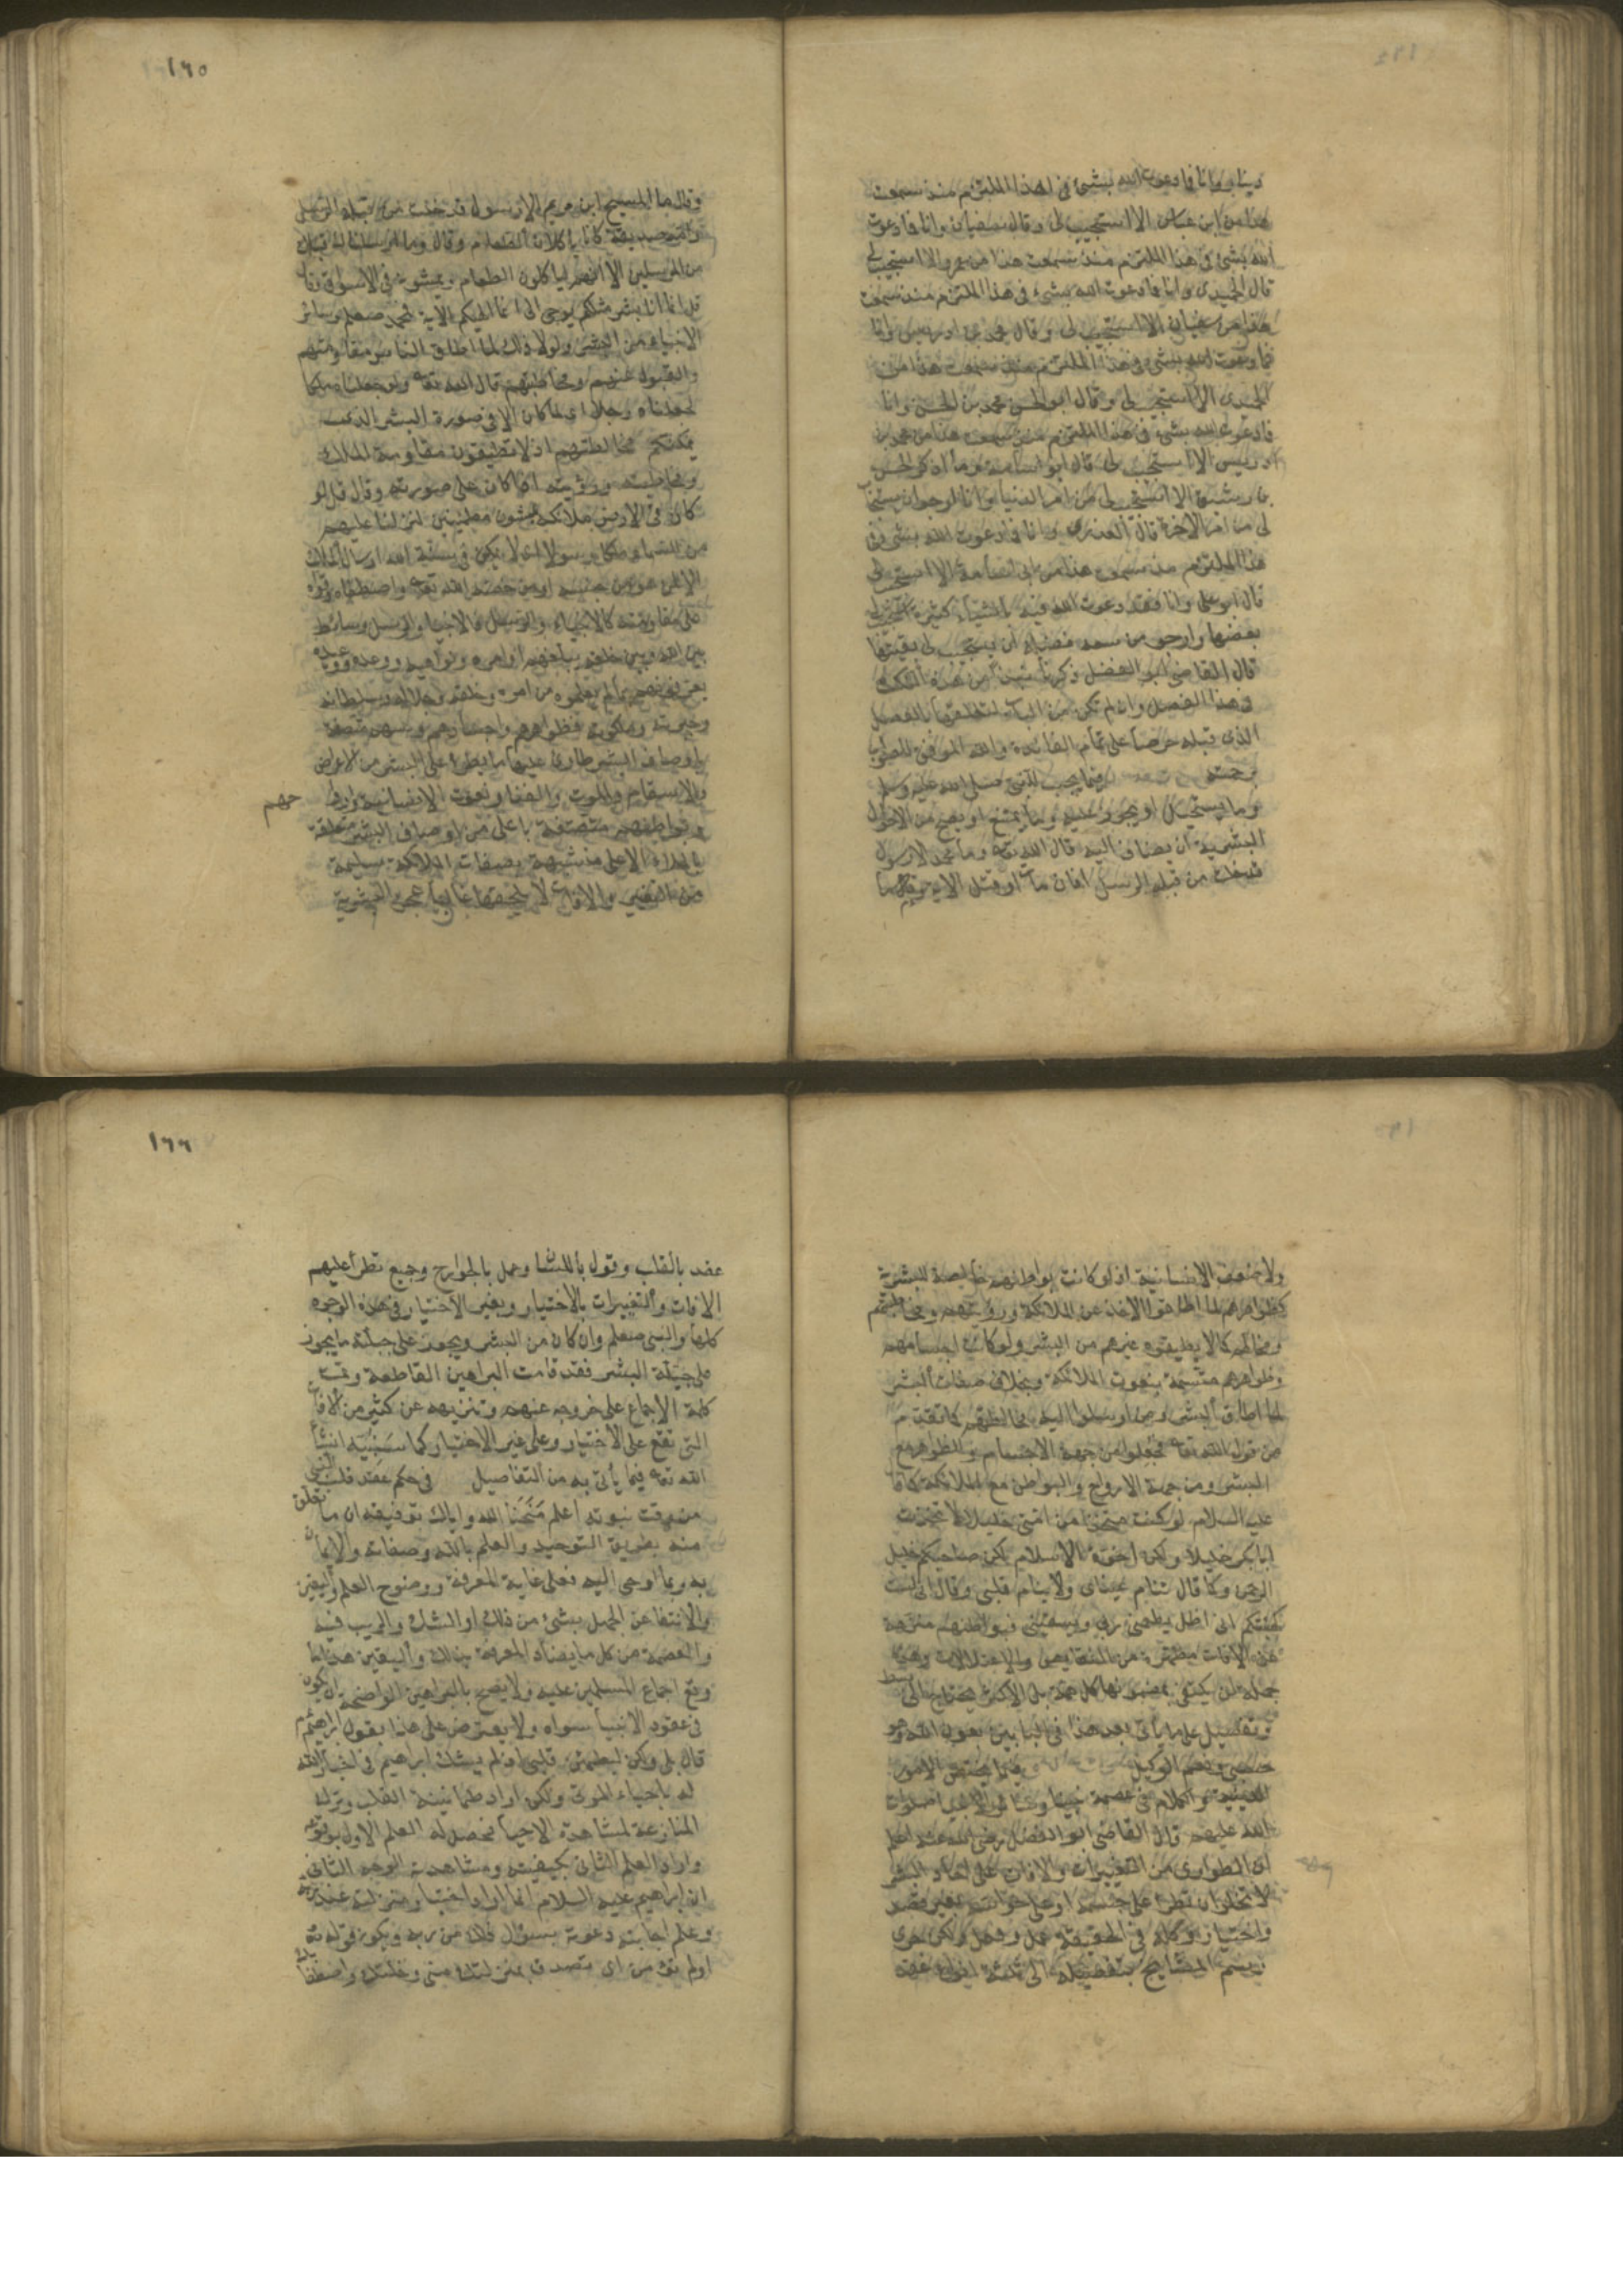 دينار وانا فما دعوت الله بشئ في هذا الملتزم منذ سمعت
هذا من ابن عباس الا استجيب لي وقال سفيان وانا فما دعوت
الله بشئ في هذا الملتزم منذ سمعت هذا من عمرو الا استجيب لي
قال الحميدي وانا فما دعوت الله بشئ في هذا الملتزم منذ سمعت
هذا من سفيان الا استجيب لي وقال محمد بن ادريس وانا
فما دعوت الله بشئ في هذا الملتزم منذ سمعت هذا من
الحميدي الا استجيب لي وقال ابو الحسن محمد بن الحسن وانا
فما دعوت الله بشئ في هذا الملتزم منذ سمعت هذا من محمد بن
ادريس الا استجيب لي قال ابو اسامة وما اذكر الحسن
الا استجيب لي من امر الدنيا وانا ارجو ان يستجاب
لي من امر الاخرة قال العذري وانا فما دعوت الله بشئ في
هذا الملتزم منذ سمعت هذا من ابي اسامة الا استجيب لي
قال ابو علي وانا فقد دعوت الله فيه باشياء كثيرة استجيب لي
بعضها وارجو من سعة فضله ان يستجيب لي بقيتها
قال القاضي ابو الفضل ذكرنا نبذا من هذه النكت
في هذا الفصل وان لم تكن من الباب لتعلقها بالفصل
الذي قبله حرصا على تمام الفائدة والله الموفق للصواب
برحمته فيما يجب للنبي صلى الله عليه وسلم
وما يستحيل او يجوز عليه وما يمتنع او يصح من الاحوال
البشرية ان يضاف اليه قال الله تعه وما محمد الا رسول
قد خلت من قبله الرسل افان مات او قتل الاية
١٦٥
وقال ما المسيح ابن مريم الا رسول قد خلت من قبله الرسل
وامه صديقة كانا ياكلان الطعام وقال وما ارسلنا قبلك
من المرسلين الا انهم لياكلون الطعام ويمشون في الاسواق وقال
قل انما انا بشر مثلكم يوحى الي انما الهكم الآية فمحمد صعلم وسائر
الانبياء من البشر ولولا ذلك لما اطاق الناس مقاومتهم
والقبول عنهم ومخاطبتهم قال الله تعه ولو جعلناه ملكا
لجعلناه رجلا اي لما كان الا في صورة البشر الذي
يمكنكم مخالطتهم اذ لا تطيقون مقاومة الملك
ومخاطبته ورؤيته اذا كان على صورته وقال قل لو
كان في الارض ملائكة يمشون مطمئنين لنزلنا عليهم
من السماء ملكا رسولا اي لا يمكن في سنة الله ارسال الملك
الا لمن هو من جنسه او من خصه الله تعه واصطفاه وقواه
على مقاومته كالانبياء والرسل فالانبياء والرسل وسائط
بين الله وبين خلقه يبلغونهم اوامره ونواهيه ووعده ووعيده
يعرفونهم بما لم يعلموه من امره وخلقه وجلاله وسلطانه
وجبروته وملكوته فظواهرهم واجسادهم وبنيتهم متصفة
باوصاف البشر طارئ عليها ما يطرء على البشر من الاعراض
والاسقام والموت والفناء ونعوت الانسانية وارواحهم
وبواطنهم متصفة باعلى من اوصاف البشر متعلقة
بالملاء الاعلى متشبهة بصفات الملائكة سليمة
من التغير والافات لا يلحقها غالبا عجز البشرية
ولا ضعف الانسانية اذ لو كانت بواطنهم خالصة للبشرية
كظواهرهم لما اطاقوا الاخذ عن الملائكة ورؤيتهم ومخاطبتهم
ومخالتهم كما لا يطيقه غيرهم من البشر ولو كانت اجسامهم
وظواهرهم متسمة بنعوت الملائكة وبخلاف صفات البشر
لما اطاق البشر ومن ارسلوا اليه مخالطتهم كما تقدم
من قول الله تعه فجعلوا من جهة الاجسام والظواهر مع
البشر ومن جهة الارواح والبواطن مع الملائكة كما قال
عليه السلام لو كنت متخذا من امتي خليلا لاتخذت
ابا بكر خليلا ولكن اخوة الاسلام لكن صاحبكم خليل
الرحمن وكما قال تنام عيناي ولا ينام قلبي وقال اني لست
كهيئتكم اني اظل يطعمني ربي ويسقيني فبواطنهم منزهة
عن الافات مطهرة من النقايص والاعتلالات وهذه
جملة لن يكتفي بمضمونها كل همة بل الاكثر يحتاج الى بسط
وتفصيل على ما يأتي بعد هذا في البابين بعون الله وهو
حسبي ونعم الوكيل فيما يختص بالامور
الدينية والكلام في عصمة نبينا وسائر الانبياء صلوات
الله عليهم قال القاضي ابو الفضل رضي الله عنه اعلم
ان الطواري من التغييرات والافات على احاد البشر
لا تخلو ان تطرا على جسمه او على حواسه بغير قصد
واختيار وكله في الحقيقة عمل وفعل ولكن جرى
رسم المشايخ بتفصيله الى ثلثة انواع عقد
١٦٦
عقد بالقلب وقول باللسان وعمل بالجوارح وجميع تطرأ عليهم
الافات والتغييرات بالاختيار وبغير الاختيار في هذه الوجوه
كلها والنبي صعلم وان كان من البشر ويجوز على جبلته ما يجوز
على جبلة البشر فقد قامت البراهين القاطعة وتمت
كلمة الاجماع على خروجه عنهم وتنزيهه عن كثير من الافات
التي تقع على الاختيار وعلى غير الاختيار كما سنبينه انشأ
الله تعه فيما يأتي به من التفاصيل في حكم عقد قلب النبي
من وقت نبوته اعلم منحنا الله واياك توفيقه ان ما تعلق
منه بطريق التوحيد والعلم بالله وصفاته والايمان
به وبما اوحي اليه فعلى غاية المعرفة ووضوح العلم واليقين
والانتفا عن الجهل بشئ من ذلك او الشك والريب فيه
والعصمة من كل ما يضاد المعرفة بذلك واليقين هذا ما
وقع اجماع المسلمين عليه ولا يصح بالبراهين الواضحة ان يكون
في عقود الانبيأ سواه ولا يعترض على هذا بقول ابراهيم عم
قال بلى ولكن ليطمئن قلبي اذ لم يشك ابراهيم في اخبار الله
له باحياء الموتى ولكن اراد طمانينة القلب وترك
المنازعة لمشاهدة الاحيأ فحصل له العلم الاول بوقوعه
واراد العلم الثاني بكيفيته ومشاهدته الوجه الثاني
ان ابراهيم عليه السلام انما اراد اختبار منزلته عند ربه
وعلم اجابته دعوته بسؤال ذلك من ربه ويكون قوله تع
اولم تؤمن اي تصدق بمنزلتك مني وخلتك واصطفائك